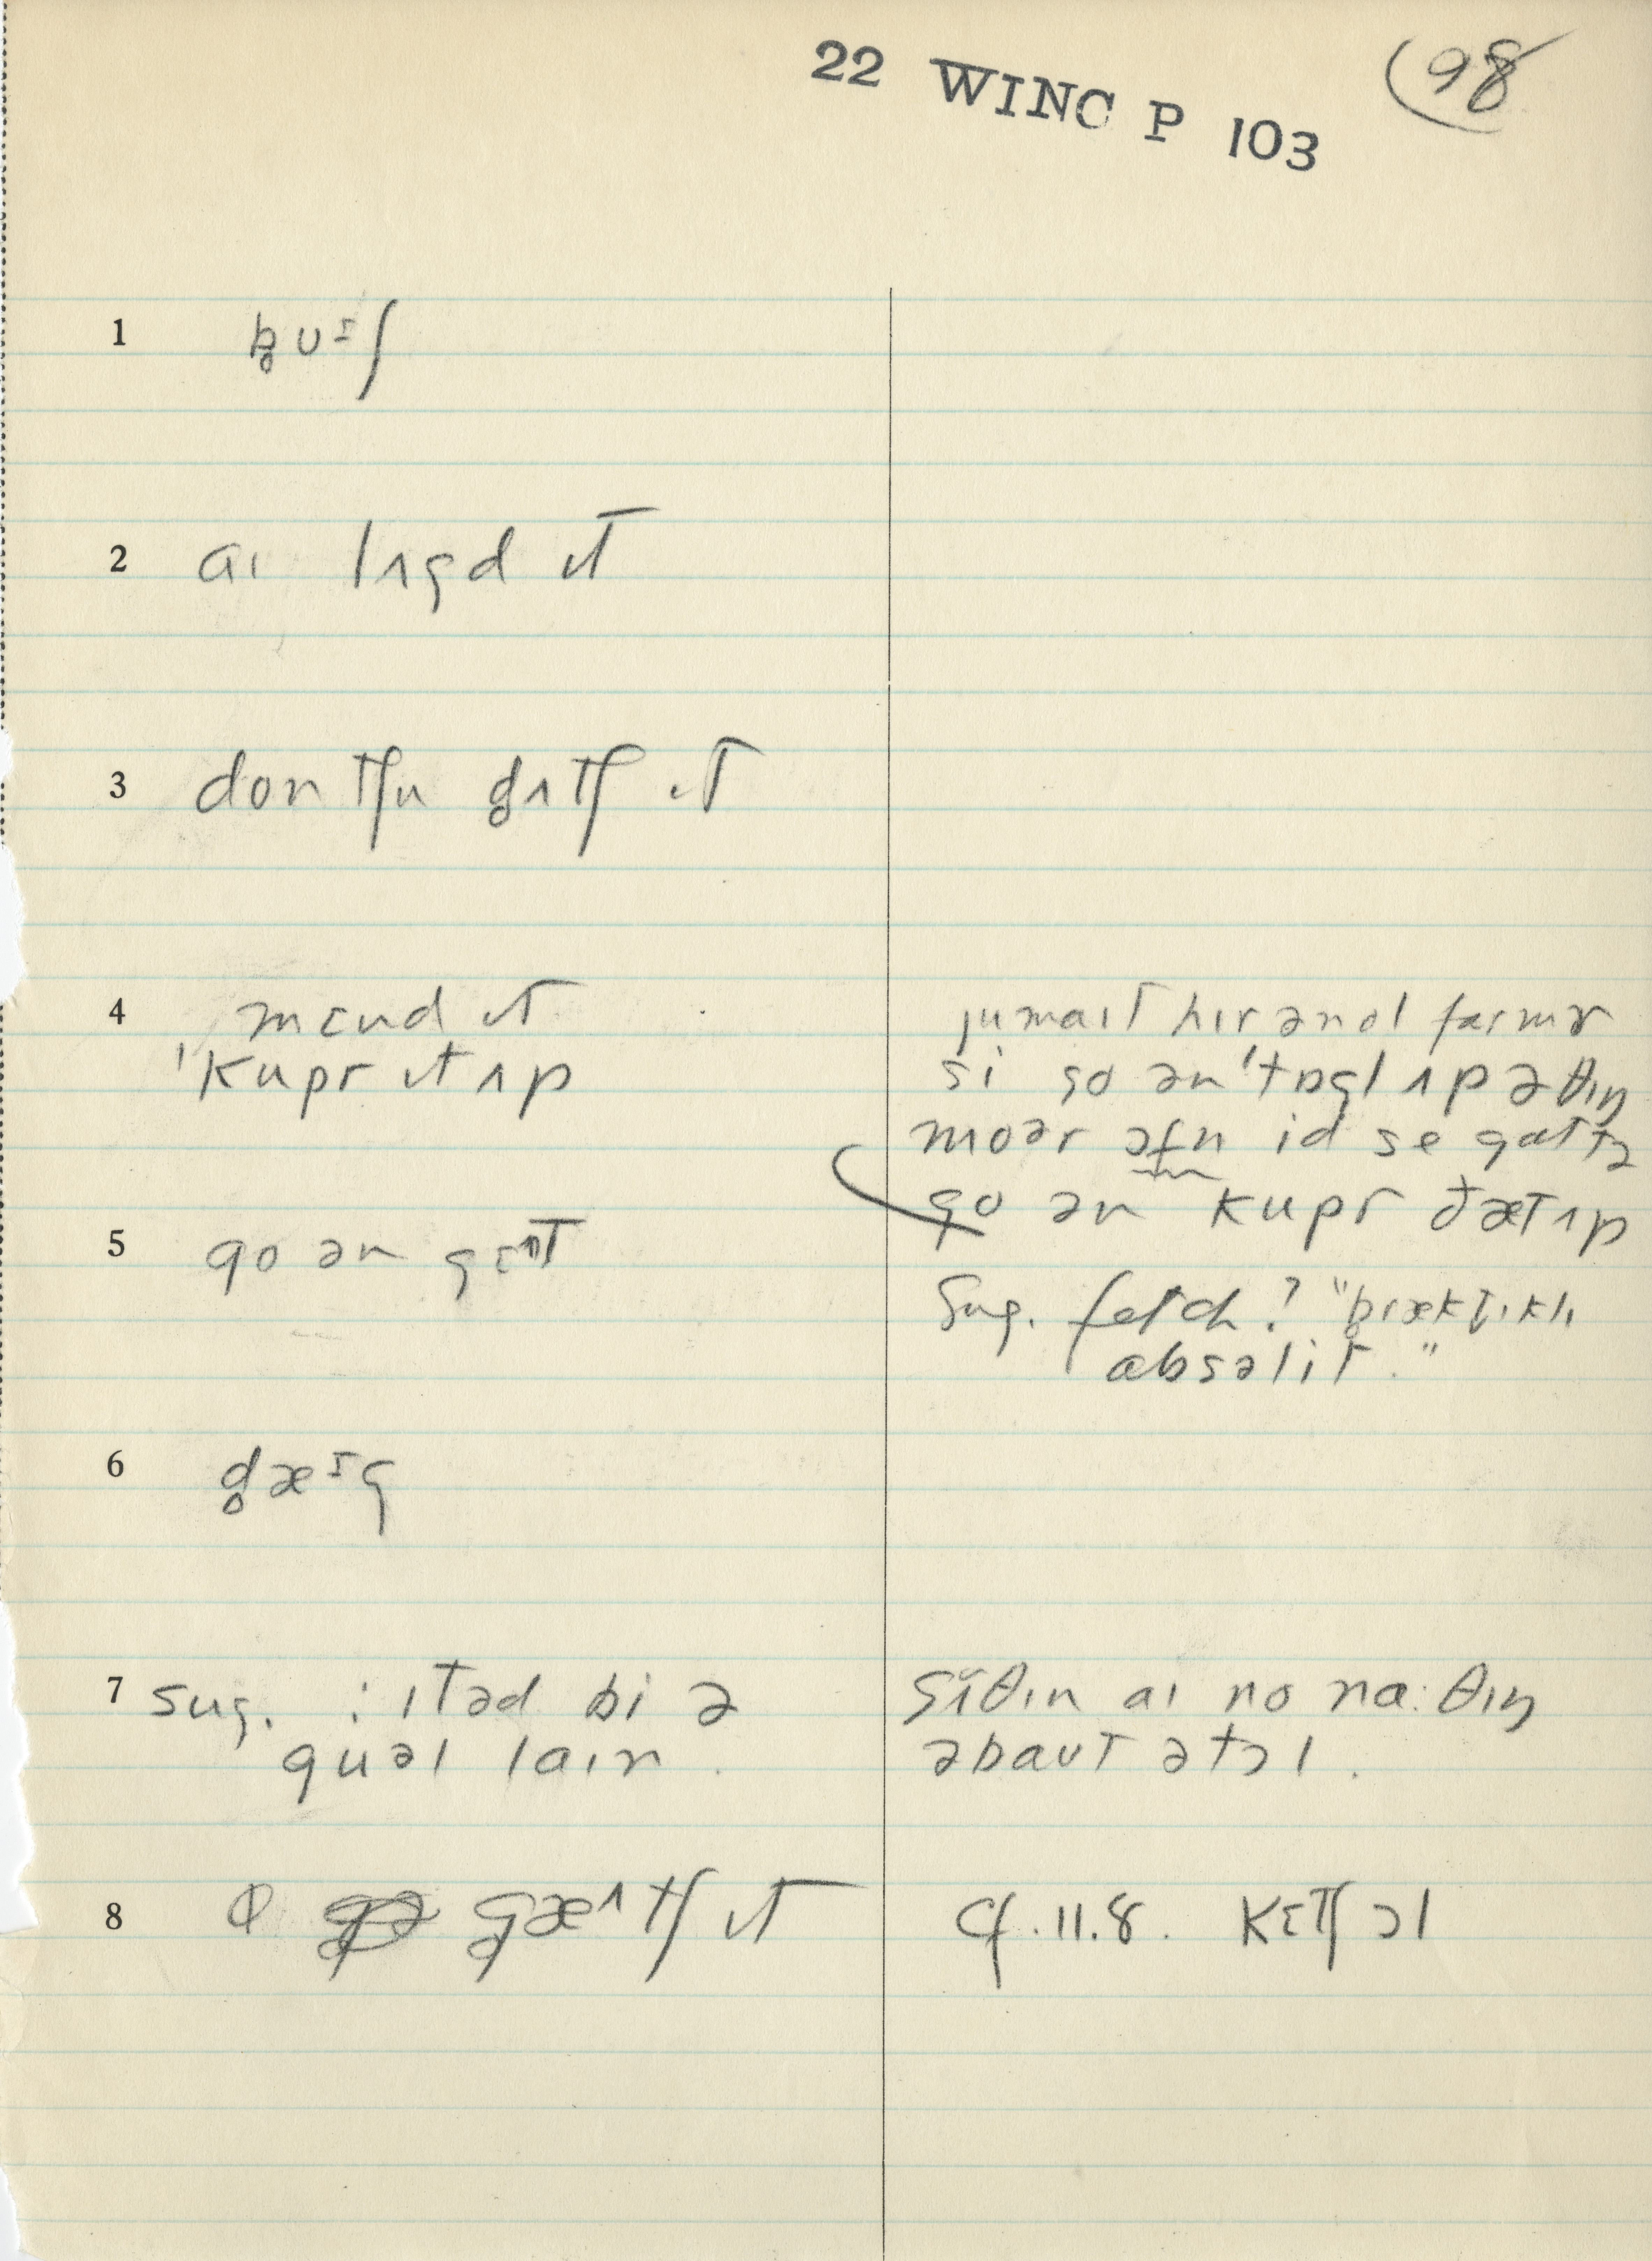 22 WINC P 103
98
1 b̥ᴜᶦʃ
2 aɪ lʌgd ɪt
3 don tʃu d̥ʌtʃ ɪt
4 mɛnd ɪt
ˈkupr ɪt ʌp
jumaɪt hɪr ənol farmɚ
si go ənˈtɒgl ʌp ə θɪŋ
moər ɔfn id se gattə
go ən kupr ðæt ʌp
5 go ən gɛᶦt
Sug. fetch? "præktɪklɪ
absəlit."
6 d̥æᶦg
7 sug. : ɪtəd bi ə
guəl laɪn.
sʌ̃θɪn aɪ no na:θɪŋ
əbaʊt ətɔl.
8 Φ g̥æᶺtʃ ɪt
cf. 11.8. kɛtʃ ɔl